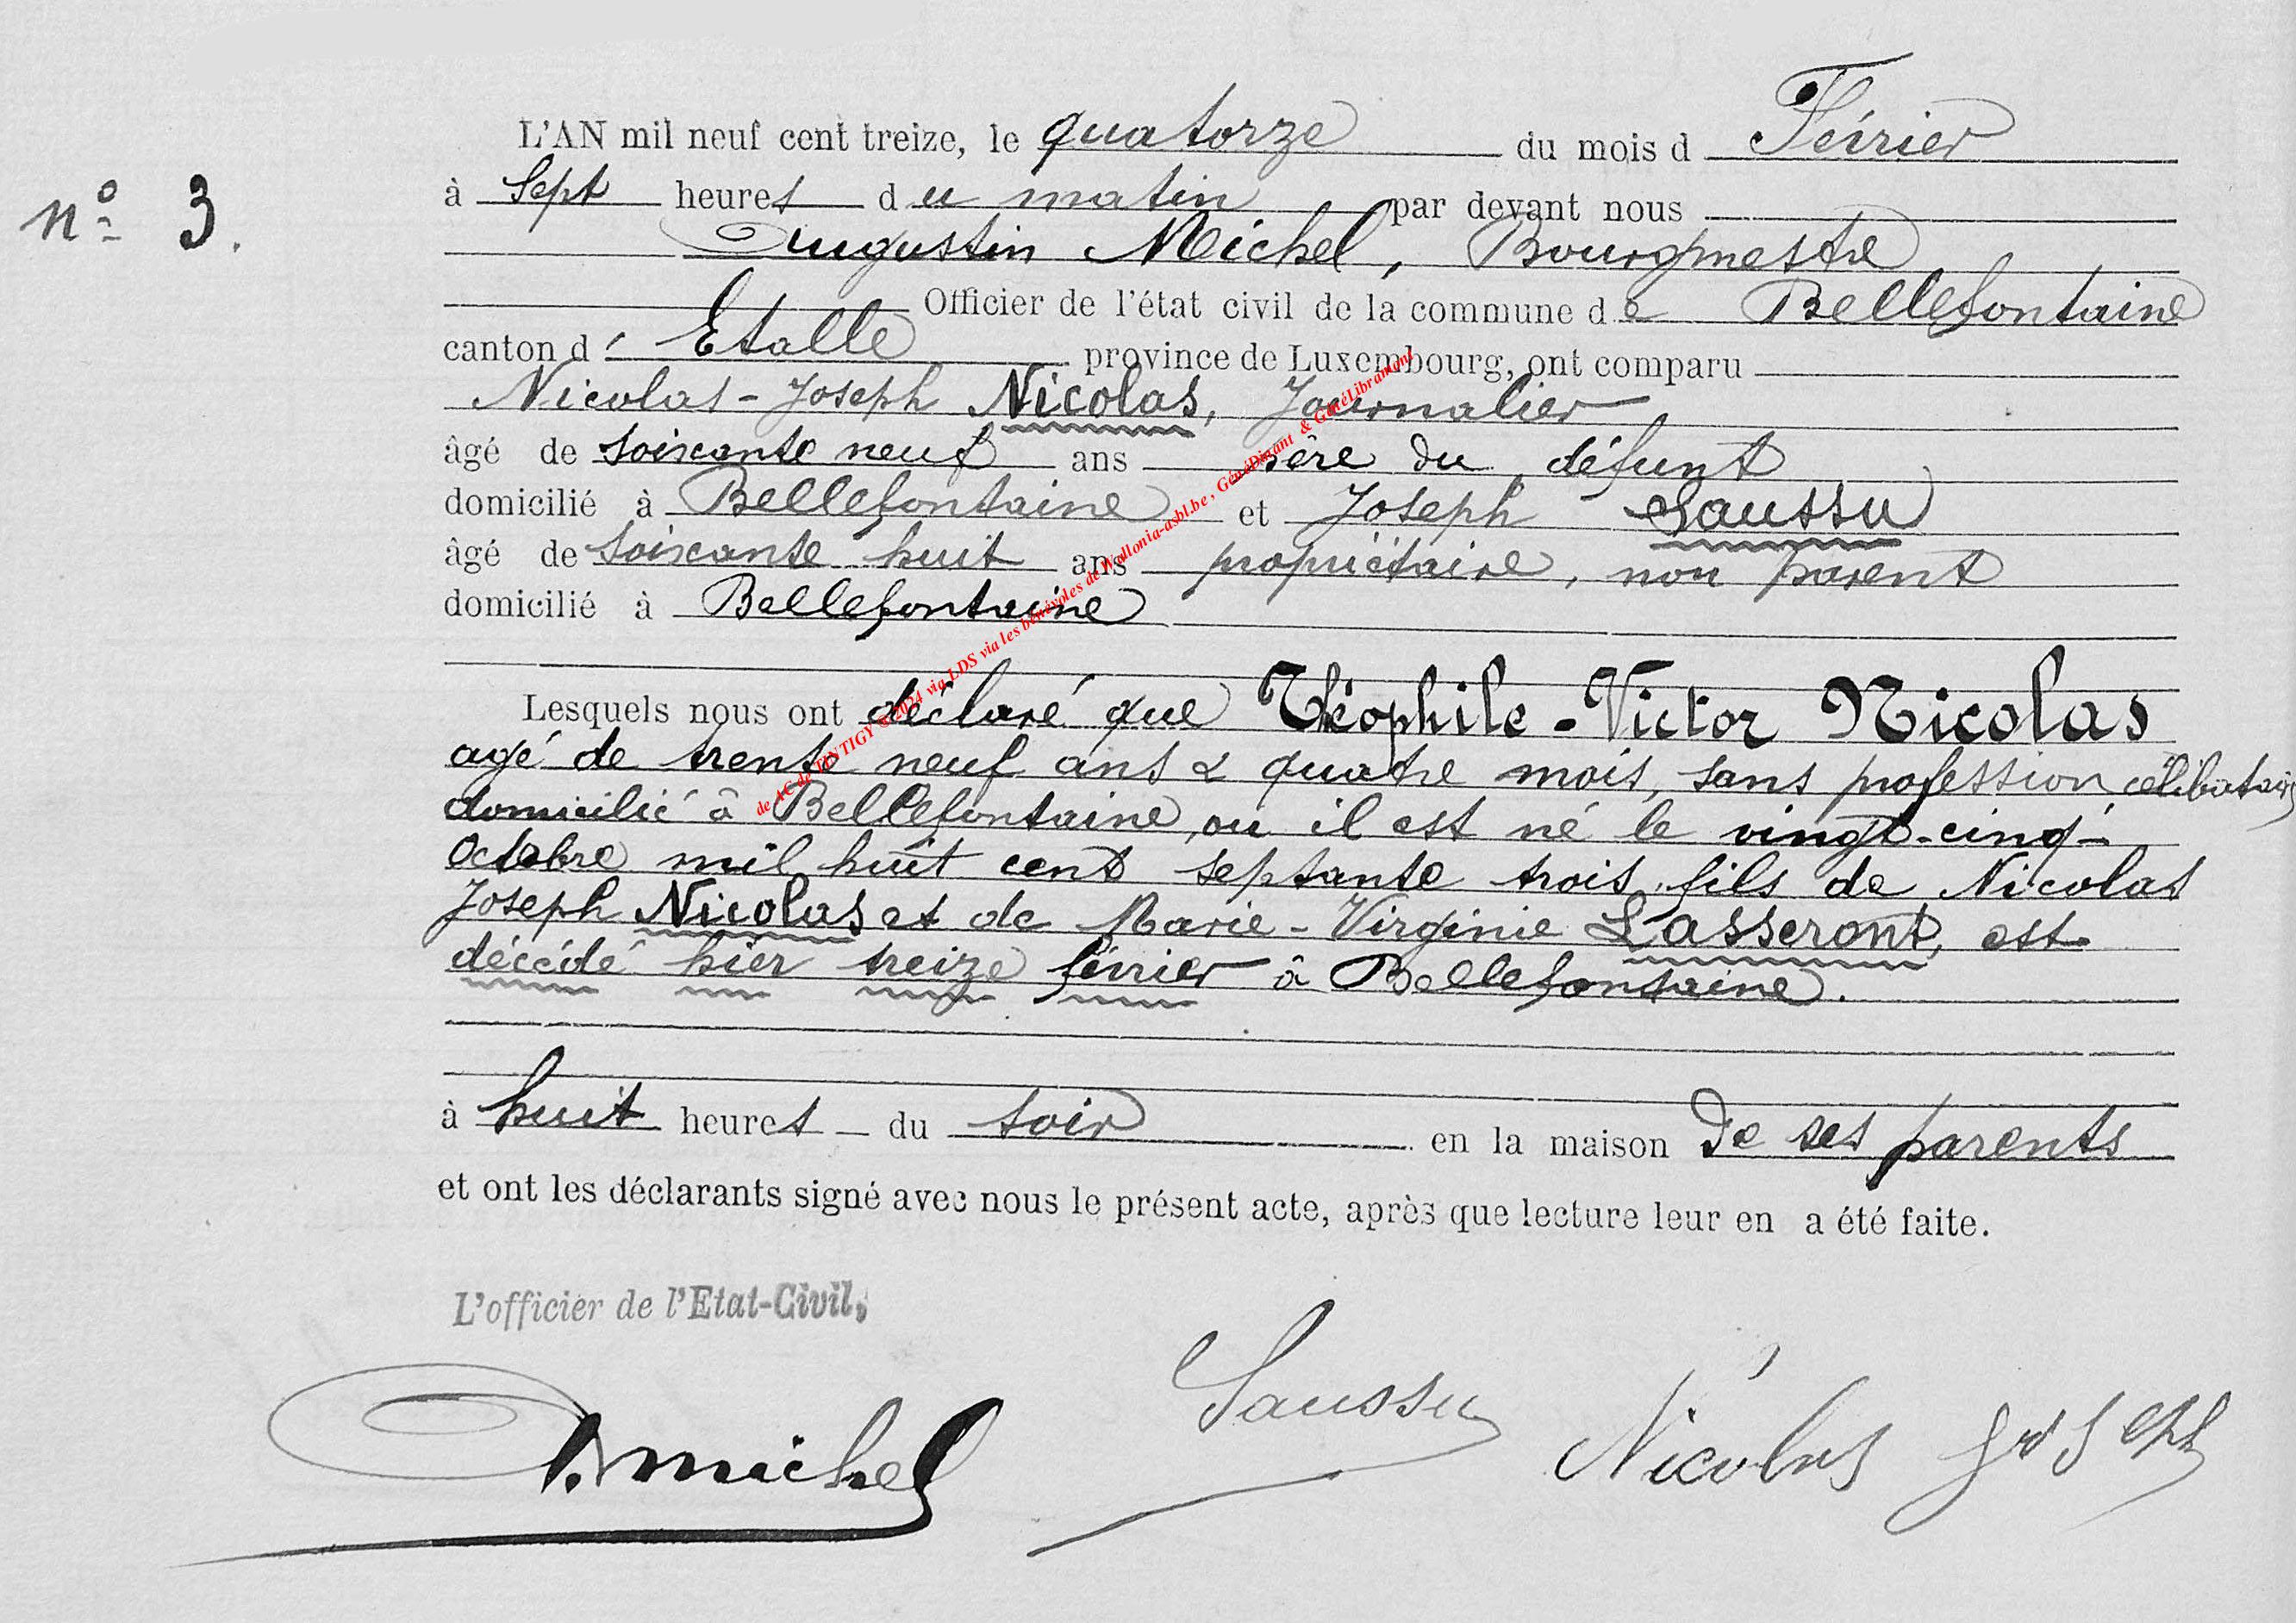 n° 3.
L'AN mil neuf cent treize, le quatorze du mois d Février
à Sept heures du matin par devant nous
Augustin Michel, Bourgmestre
Officier de l'état civil de la commune de Bellefontaine
canton d' Etalle province de Luxembourg, ont comparu
Nicolas-Joseph Nicolas, Journalier,
âgé de soixante neuf ans père du défunt
domicilié à Bellefontaine et Joseph Saussu
âgé de soixante huit ans propriétaire, non parent
domicilié à Bellefontaine
Lesquels nous ont déclaré que Théophile-Victor Nicolas
agé de trente neuf ans & quatre mois, sans profession célibataire
domicilié à Bellefontaine, où il est né le vingt-cinq
Octobre mil huit cent septante trois, fils de Nicolas
Joseph Nicolas et de Marie-Virginie Lasseront, est
décédé hier treize février à Bellefontaine.
à huit heures du soir en la maison de ses parents
et ont les déclarants signé avec nous le présent acte, après que lecture leur en a été faite.
L'officier de l'Etat-Civil,
A. Michel Saussu Nicolas Joseph
de AC de TINTIGY © 2024 via LDS via les bénévoles de Wallonia-asbl.be, GénéDinant & GénéLibramont